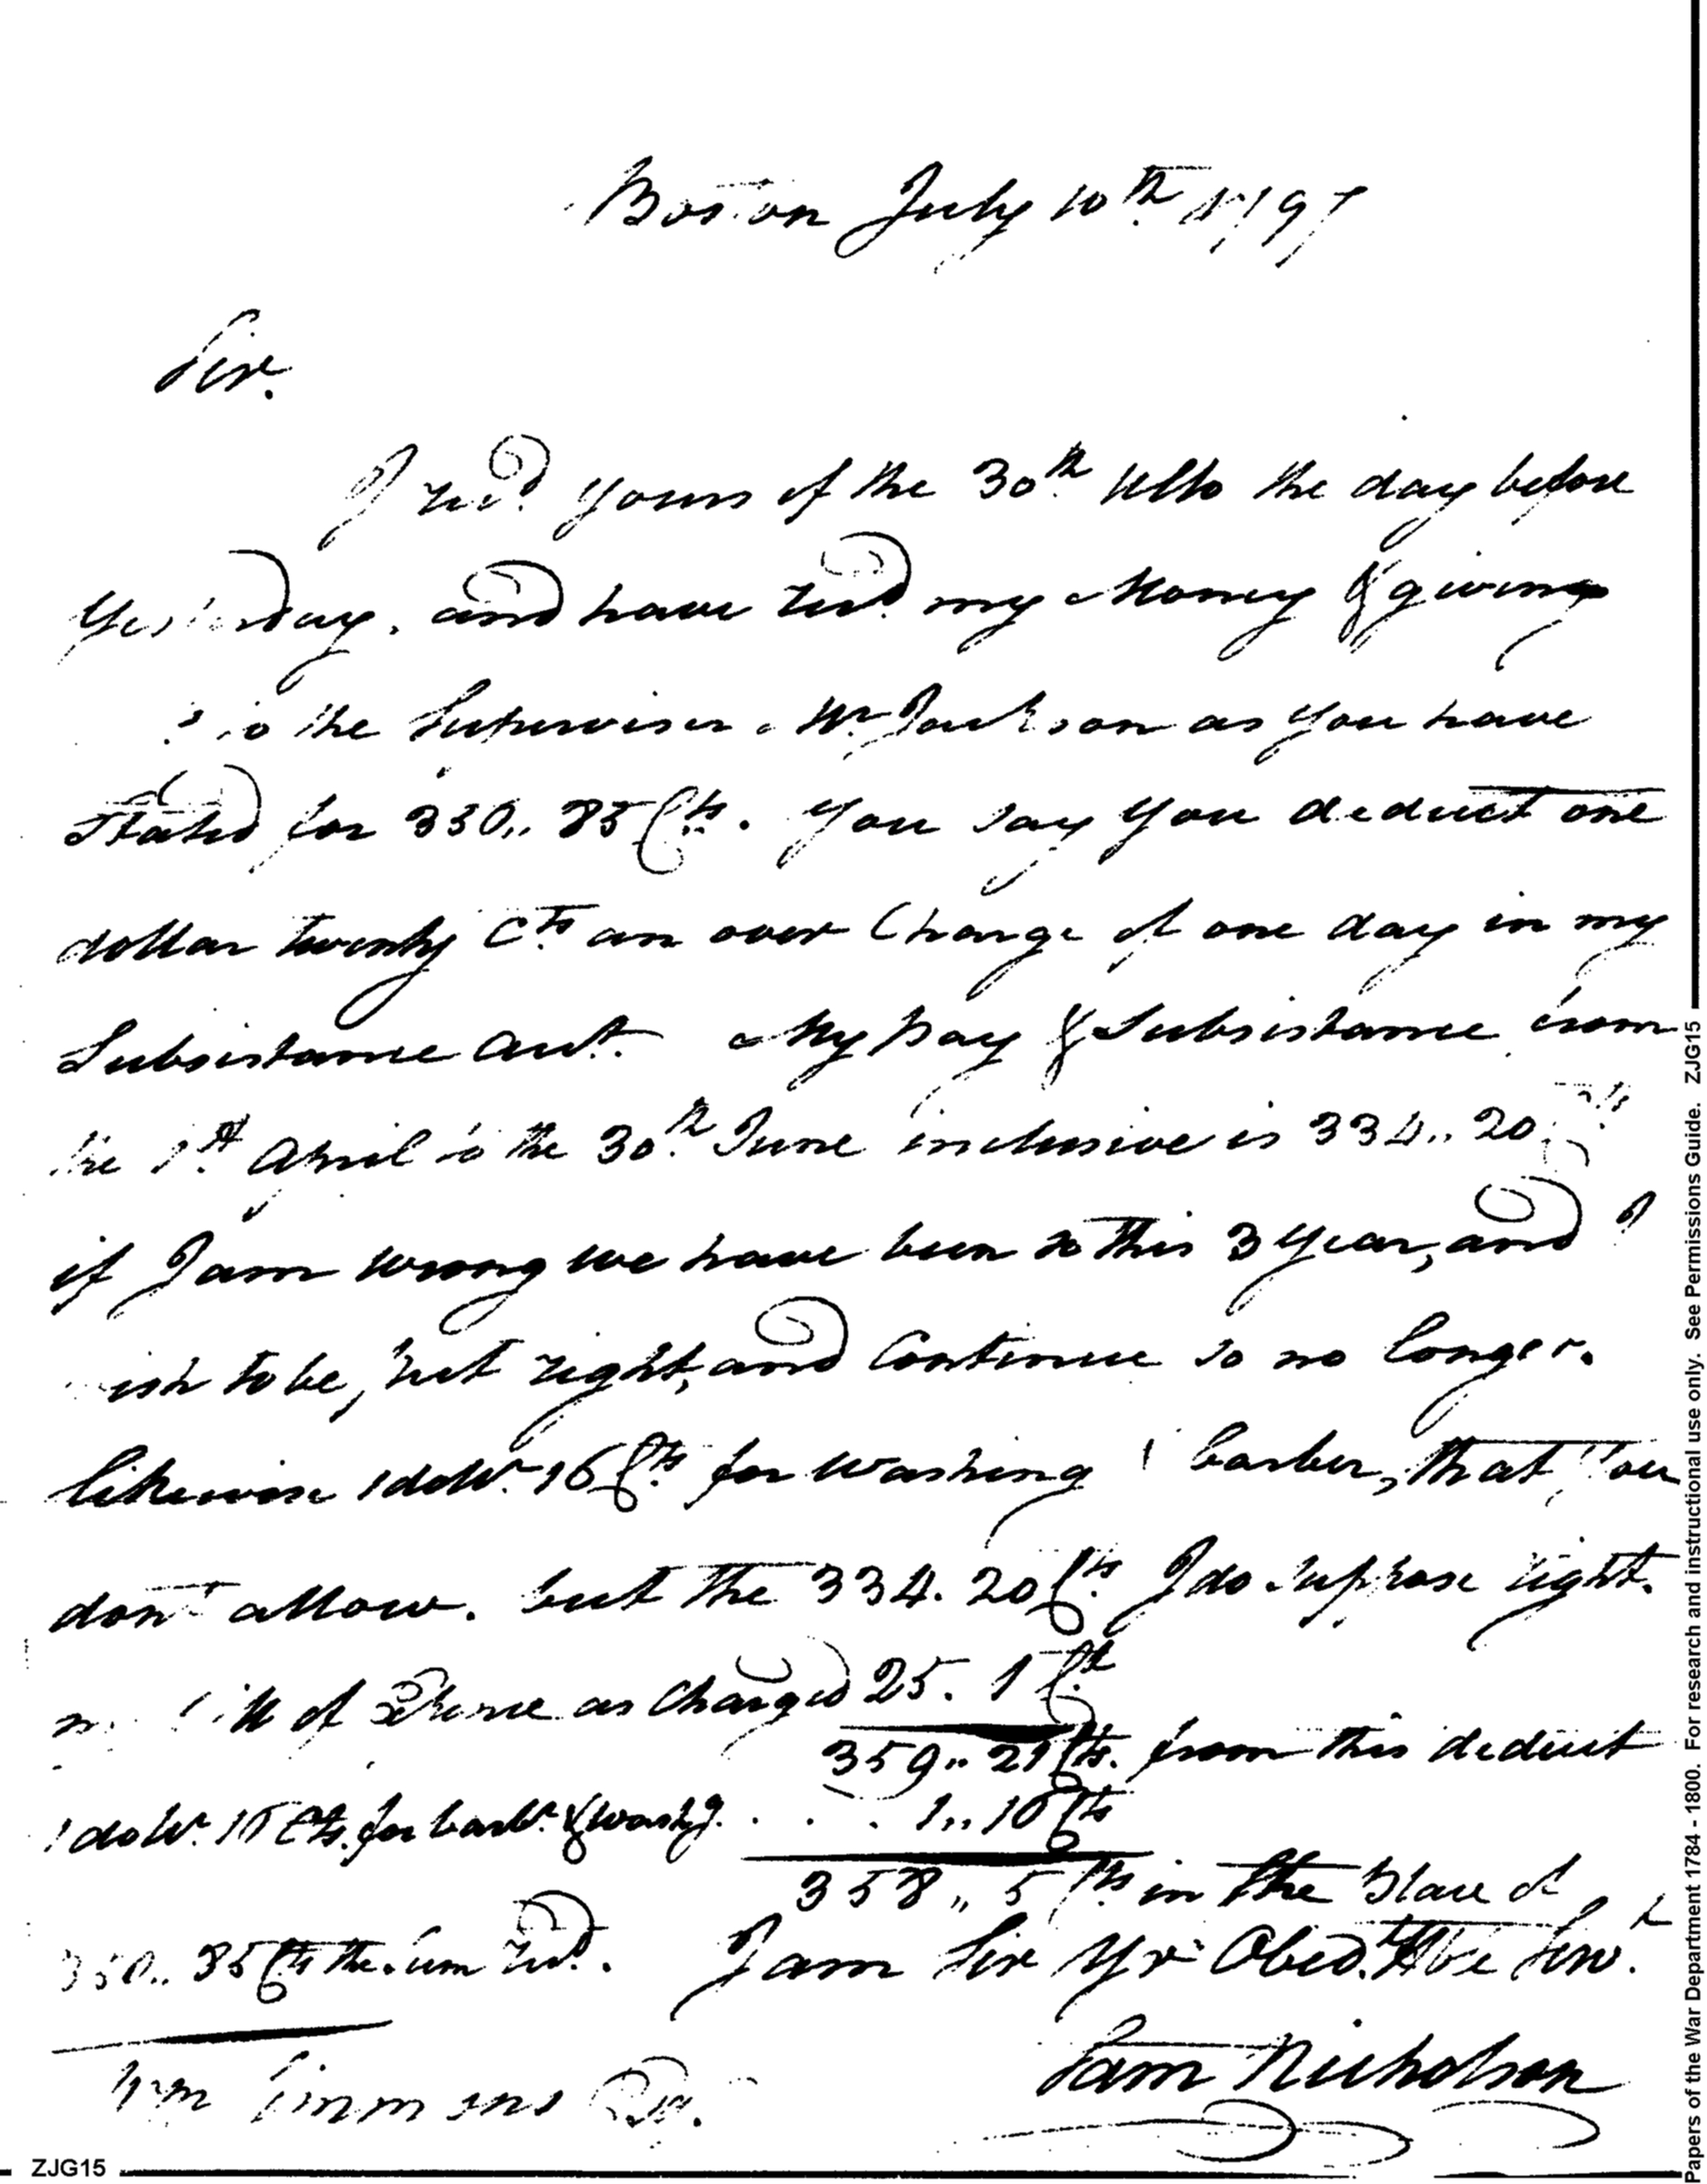 Boston July 10th 1797
Sir.
I recd. yours of the 30th Ulto the day before
Yesterday, and have recd. my Money & giving
to the Superviser Mr. Jackson as you have
Stated for 350,, 85 Cts. You say you deduct one
dollar twenty Cts an over Charge of one day in my
Subsistance Acct. My pay & Subsistance from
the 1st April to the 30th June inclusive is 334,, 20 Cts
if I am wrong we have been so this 3 Year, and I
wish to be, put right, and Continue so no longer.
likewise 1 dollr. 16 Cts. for washing & barber, that You
dont allow. but the 334. 20 Cts. I do suppose right.
my bill of as Charged 25. 1 Ct
359,, 21 Cts. from this deduct
1 dollr. 16 Cts. for barbr. & washg. . . . 1,, 16 Cts
358,, 5 Cts in the Place of
350,, 85 Cts the sum recd. I am Sir Yr Obed. Hbe Servt.
Sam Nicholson
Wm Simmons Esq.
ZJG15
Papers of the War Department 1784 - 1800. For research and instructional use only. See Permissions Guide. ZJG15